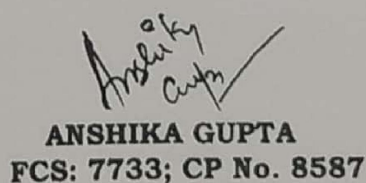 Anshika
Gupta
ANSHIKA GUPTA
FCS: 7733; CP No. 8587